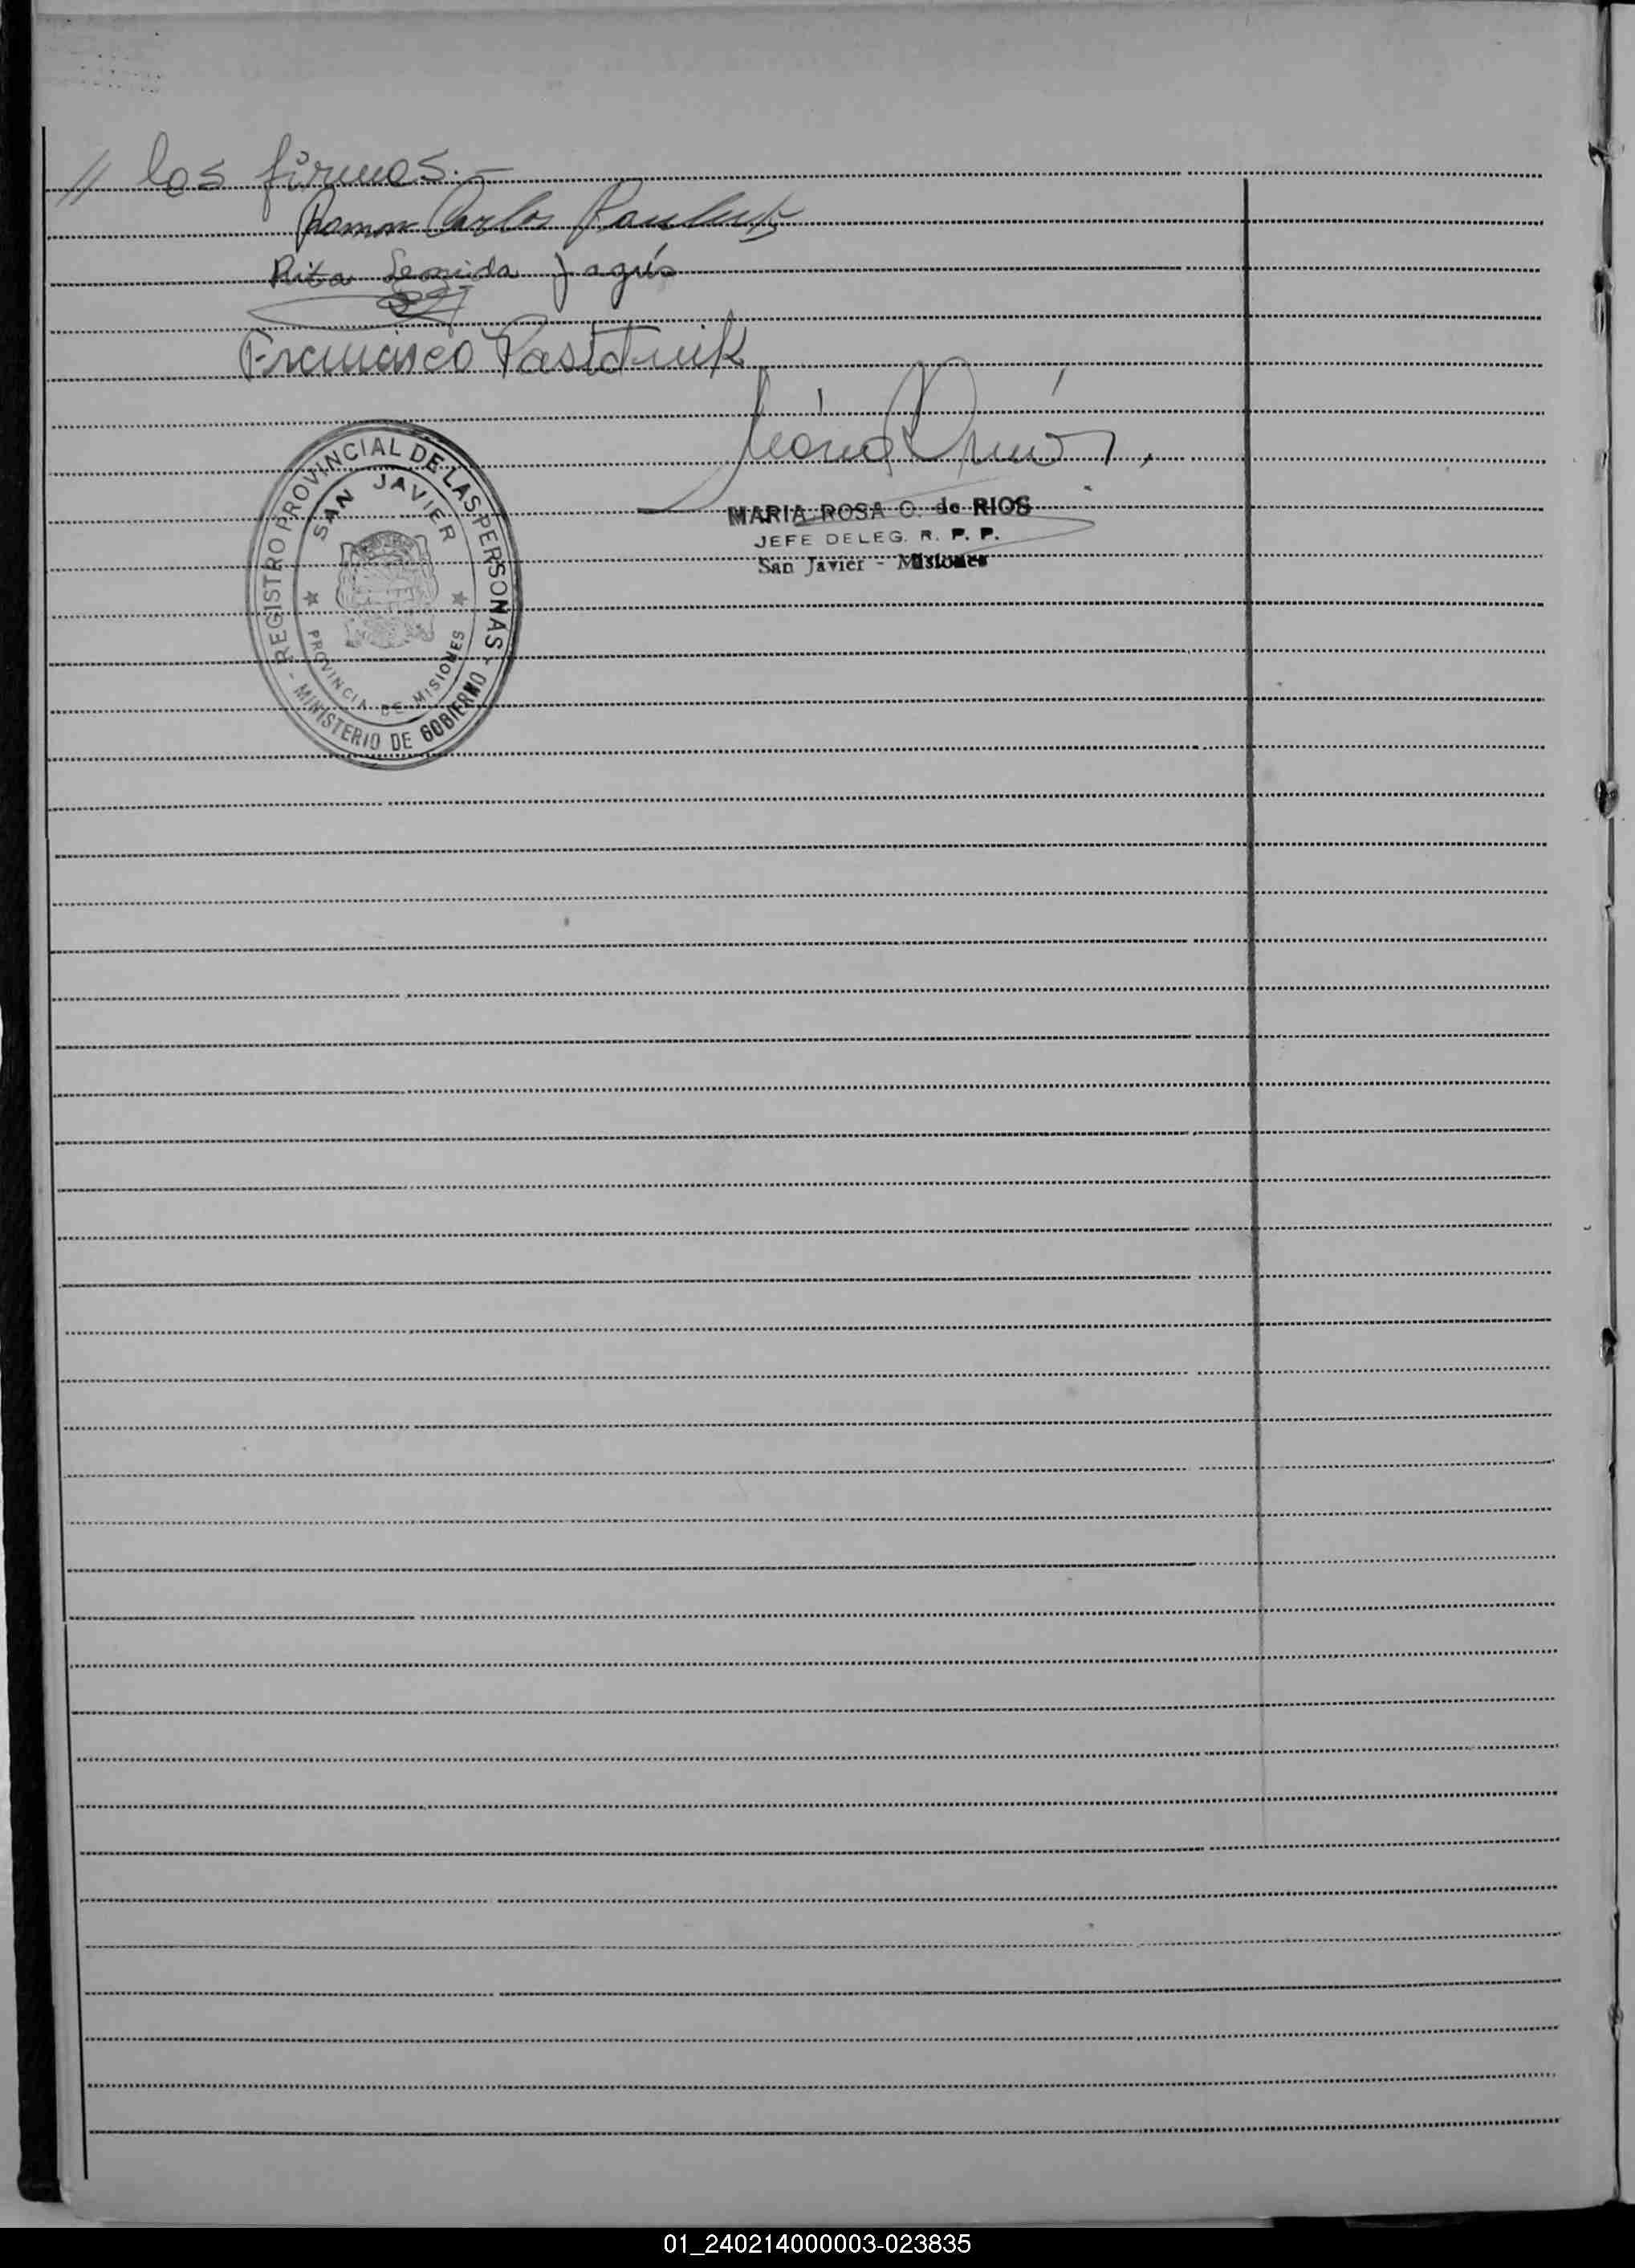 // las firmas.-
Ramon Carlos
Rita Leonida Jagús
Francisco Pastorniik
MARIA ROSA O. de RIOS
JEFE DELEG. R. P. P.
San Javier - Misiones
REGISTRO PROVINCIAL DE LAS PERSONAS
- MINISTERIO DE GOBIERNO -
SAN JAVIER
PROVINCIA DE MISIONES
01_240214000003-023835